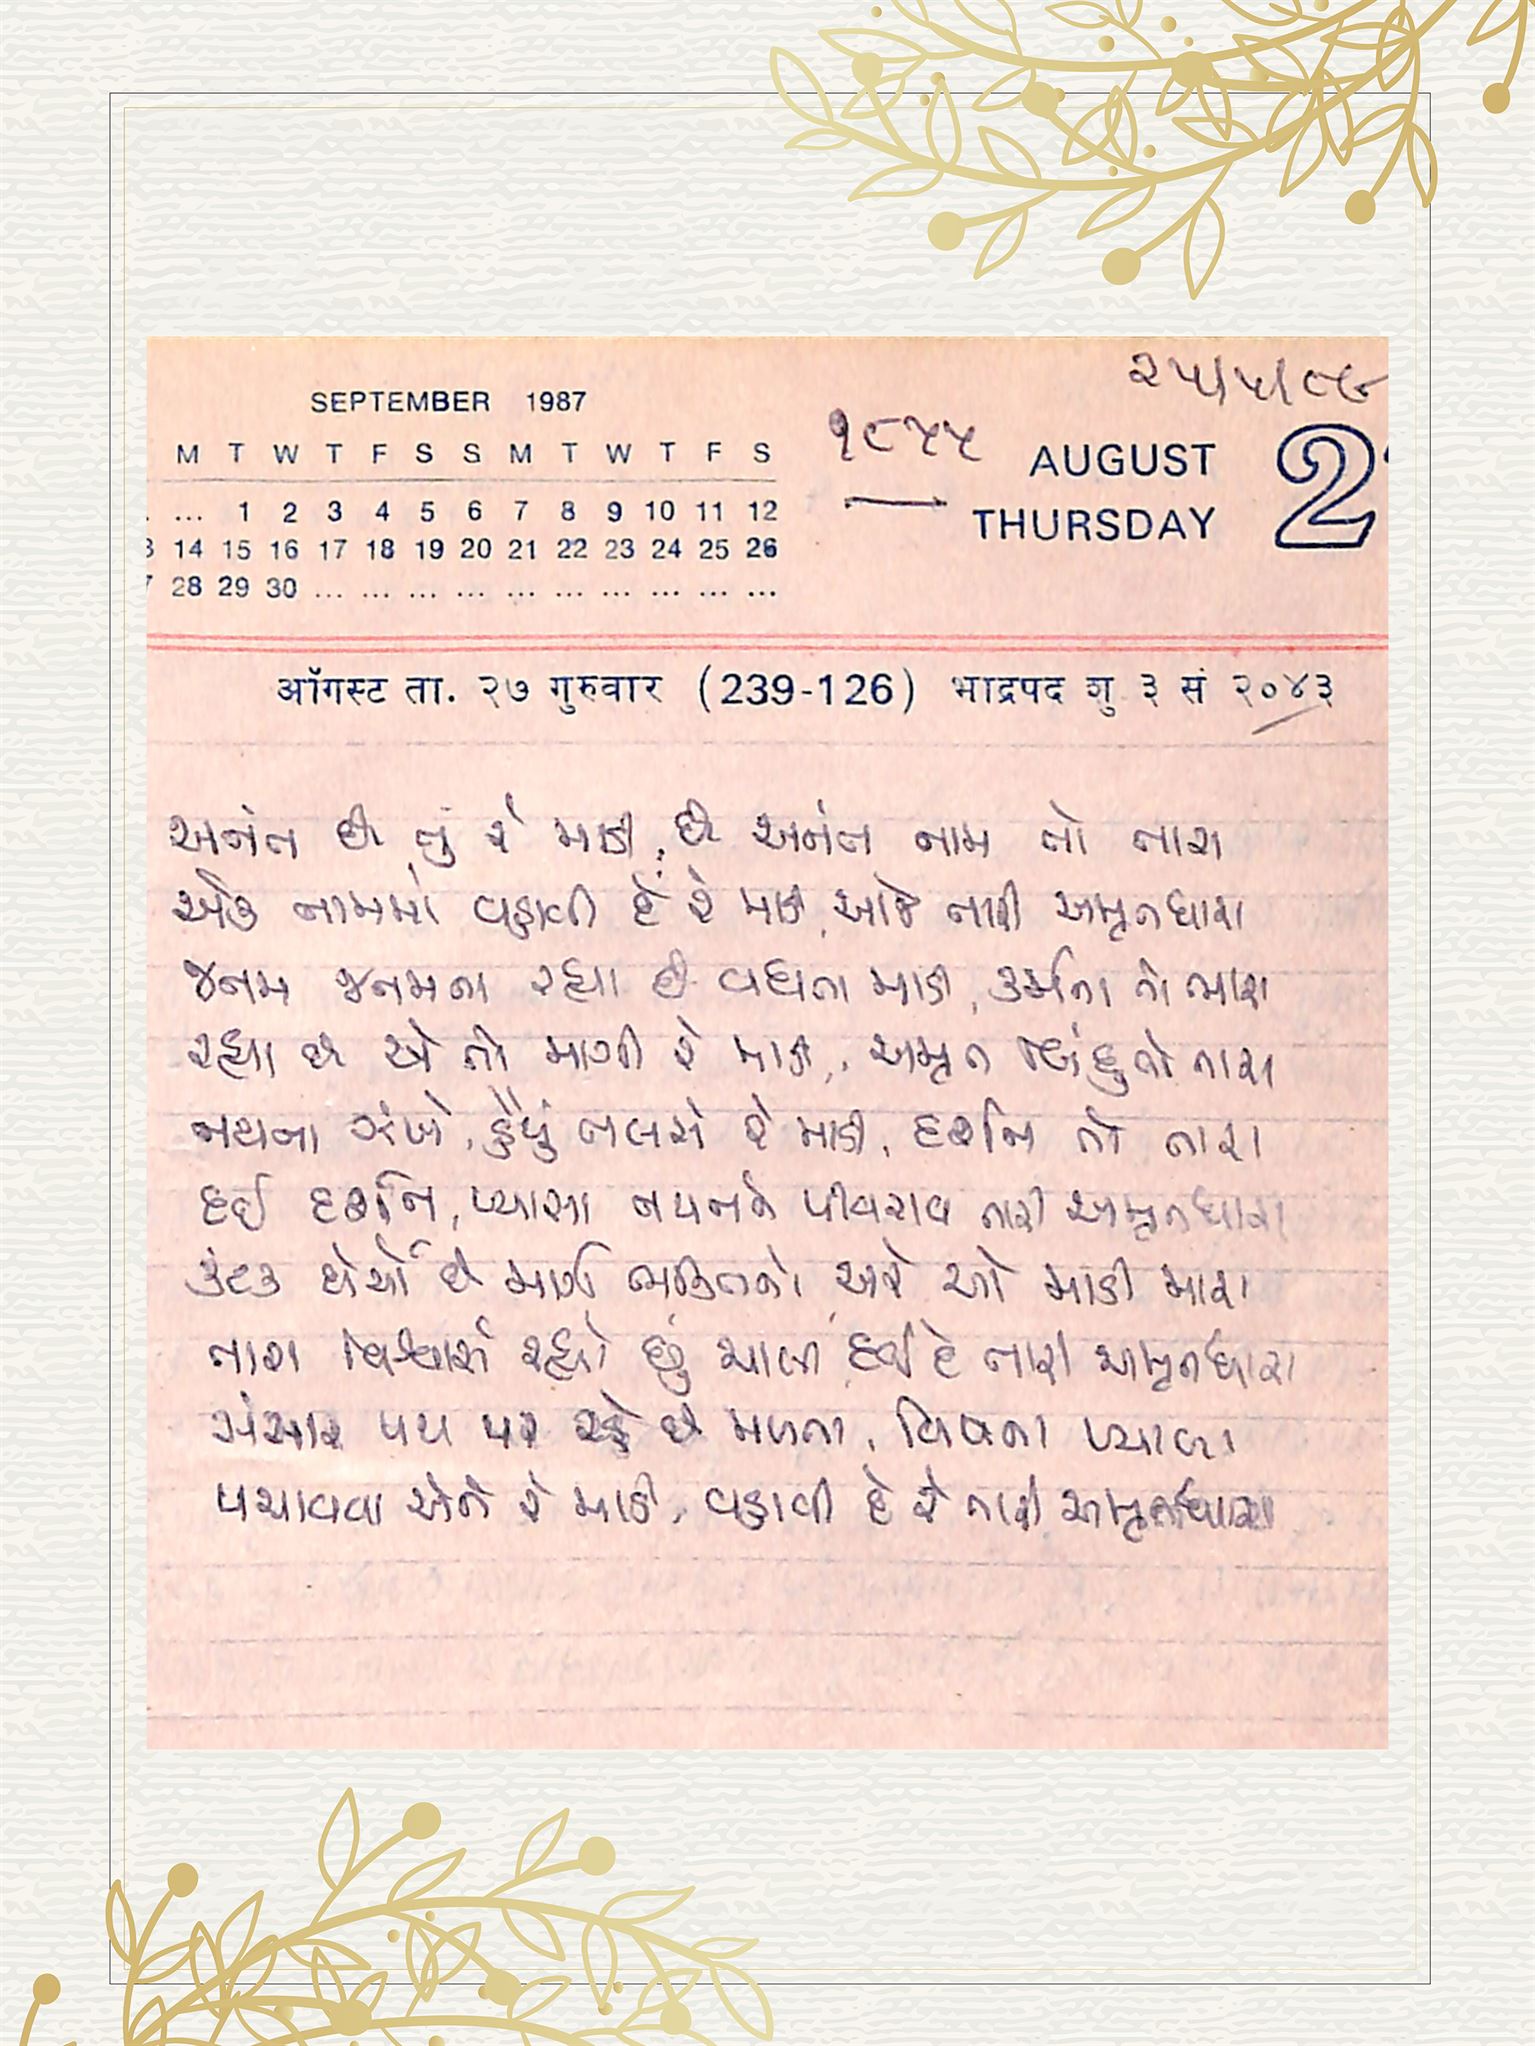 ૨૫/૫/૮૯
SEPTEMBER 1987
૧૮૫૫
AUGUST
2
M T W T F S S M T W T F S
THURSDAY
... 1 2 3 4 5 6 7 8 9 10 11 12
14 15 16 17 18 19 20 21 22 23 24 25 26
28 29 30 ... ... ... ... ... ... ... ... ... ...
ऑगस्ट ता. २७ गुरुवार (239-126) भाद्रपद शु ३ सं २०४३
અનંત છે તું રે માડી, છે અનંત નામ તો તારા
એક નામમાં વહાવી દે રે માડી, આજે તારી અમૃતધારા
જનમ જનમના રહ્યા છે વધતા માડી, કર્મના તો ભારા
રહ્યા છે એ તો માગી રે માડી, અમૃત બિંદુ તો તારા
નયના ઝંખે, હૈયું તલસે રે માડી, દર્શન તો તારા
દઈ દર્શન, પ્યાસા નયનને પીવરાવ તારી અમૃતધારા
કંટક ઘેર્યો છે માર્ગ ભક્તિનો, અરે ઓ માડી મારા
તારા વિશ્વાસે રહ્યો છું ચાલી, દઈ દે તારી અમૃતધારા
સંસાર પથ પર રહે છે મળતા, વિષના પ્યાલા
પચાવવા એને રે માડી, વહાવી દે રે તારી અમૃતધારા